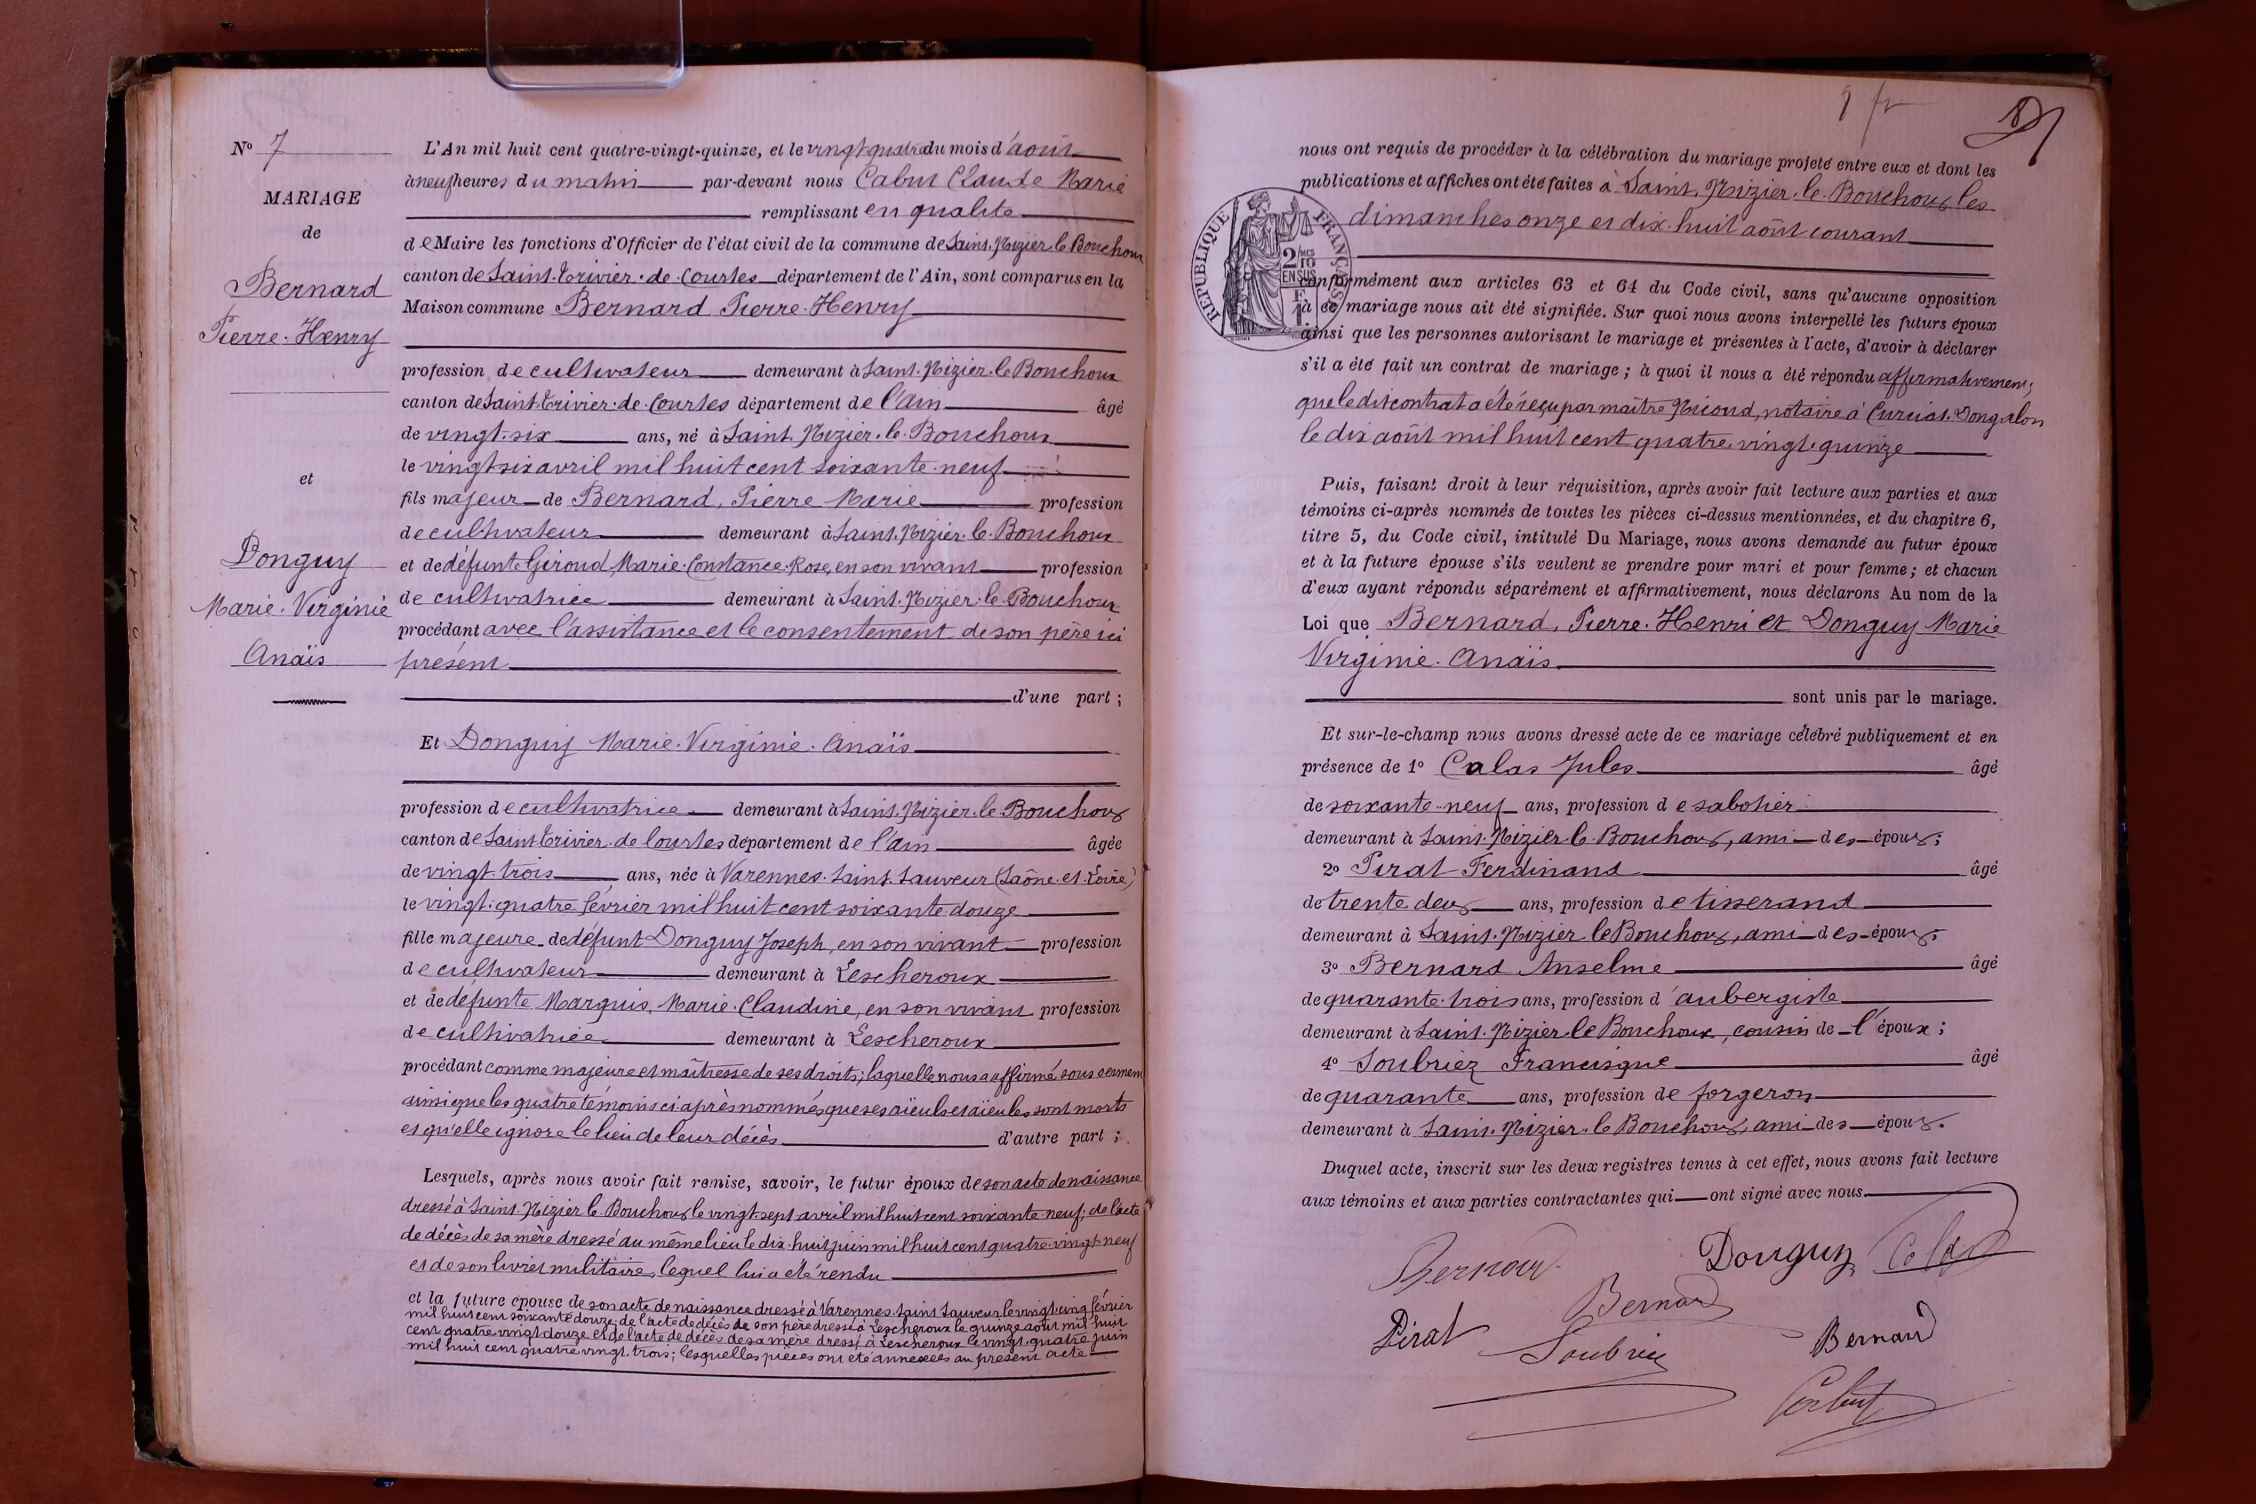 N° 7
MARIAGE
de
Bernard
Pierre-Henry
et
Donguy
Marie-Virginie
Anaïs
L'An mil huit cent quatre-vingt-quinze, et le vingt quatre du mois d'août
à neuf heures du matin par-devant nous Cabut Claude Marie
remplissant en qualité
de Maire les fonctions d'Officier de l'état civil de la commune de Saint-Nizier-le-Bouchoux
canton de Saint-Trivier-de-Courtes département de l'Ain, sont comparus en la
Maison commune Bernard Pierre-Henry
profession de cultivateur demeurant à Saint-Nizier-le-Bouchoux
canton de Saint-Trivier-de-Courtes département de l'Ain âgé
de vingt-six ans, né à Saint-Nizier-le-Bouchoux
le vingt-six avril mil huit cent soixante-neuf
fils majeur de Bernard, Pierre Marie profession
de cultivateur demeurant à Saint-Nizier-le-Bouchoux
et de défunte Giroud, Marie-Constance-Rose, en son vivant profession
de cultivatrice demeurant à Saint-Nizier-le-Bouchoux
procédant avec l'assistance et le consentement de son père ici
présent
d'une part ;
Et Donguy Marie-Virginie-Anaïs
profession de cultivatrice demeurant à Saint-Nizier-le-Bouchoux
canton de Saint-Trivier-de-Courtes département de l'Ain âgée
de vingt-trois ans, née à Varennes-Saint-Sauveur (Saône-et-Loire)
le vingt-quatre février mil huit cent soixante douze
fille majeure de défunt Donguy Joseph, en son vivant profession
de cultivateur demeurant à Lescheroux
et de défunte Marguis, Marie-Claudine, en son vivant profession
de cultivatrice demeurant à Lescheroux
procédant comme majeure et maîtresse de ses droits ; laquelle nous a affirmé sous serment
ainsi que les quatre témoins ci après nommés que ses aïeuls et aïeules sont morts
et qu'elle ignore le lieu de leur décès d'autre part ;
Lesquels, après nous avoir fait remise, savoir, le futur époux de son acte de naissance
dressé à Saint-Nizier-le-Bouchoux le vingt-sept avril mil huit cent soixante-neuf ; de l'acte
de décès de sa mère dressé au même lieu le dix-huit juin mil huit cent quatre-vingt-neuf
et de son livret militaire, lequel lui a été rendu
et la future épouse de son acte de naissance dressé à Varennes-Saint-Sauveur le vingt-cinq février
mil huit cent soixante douze, de l'acte de décès de son père dressé à Lescheroux le quinze août mil huit
cent quatre vingt douze et de l'acte de décès de sa mère dressé à Lescheroux le vingt-quatre juin
mil huit cent quatre vingt-trois ; lesquelles pièces ont été annexées au présent acte
9 fr
nous ont requis de procéder à la célébration du mariage projeté entre eux et dont les
publications et affiches ont été faites à Saint-Nizier-le-Bouchoux les
dimanches onze et dix-huit août courant
RÉPUBLIQUE FRANÇAISE
2/10 EN SUS
conformément aux articles 63 et 64 du Code civil, sans qu'aucune opposition
à ce mariage nous ait été signifiée. Sur quoi nous avons interpellé les futurs époux
ainsi que les personnes autorisant le mariage et présentes à l'acte, d'avoir à déclarer
s'il a été fait un contrat de mariage ; à quoi il nous a été répondu affirmativement ;
que le dit contrat a été reçu par maître Nicoud, notaire à Curciat-Dongalon
le dix août mil huit cent quatre-vingt-quinze
Puis, faisant droit à leur réquisition, après avoir fait lecture aux parties et aux
témoins ci-après nommés de toutes les pièces ci-dessus mentionnées, et du chapitre 6,
titre 5, du Code civil, intitulé Du Mariage, nous avons demandé au futur époux
et à la future épouse s'ils veulent se prendre pour mari et pour femme ; et chacun
d'eux ayant répondu séparément et affirmativement, nous déclarons Au nom de la
Loi que Bernard, Pierre-Henri et Donguy Marie
Virginie-Anaïs
sont unis par le mariage.
Et sur-le-champ nous avons dressé acte de ce mariage célébré publiquement et en
présence de 1° Calas Jules âgé
de soixante-neuf ans, profession de sabotier
demeurant à Saint-Nizier-le-Bouchoux, ami des époux ;
2° Pirat Ferdinand âgé
de trente deux ans, profession de tisserand
demeurant à Saint-Nizier le Bouchoux, ami des époux ;
3° Bernard Anselme âgé
de quarante-trois ans, profession d'aubergiste
demeurant à Saint-Nizier le Bouchoux, cousin de l'époux ;
4° Soubriez Francisque âgé
de quarante ans, profession de forgeron
demeurant à Saint-Nizier-le-Bouchoux, ami des époux.
Duquel acte, inscrit sur les deux registres tenus à cet effet, nous avons fait lecture
aux témoins et aux parties contractantes qui ont signé avec nous
Bernard Donguy Calas
Bernard
Pirat Soubriez Bernard
Cabut